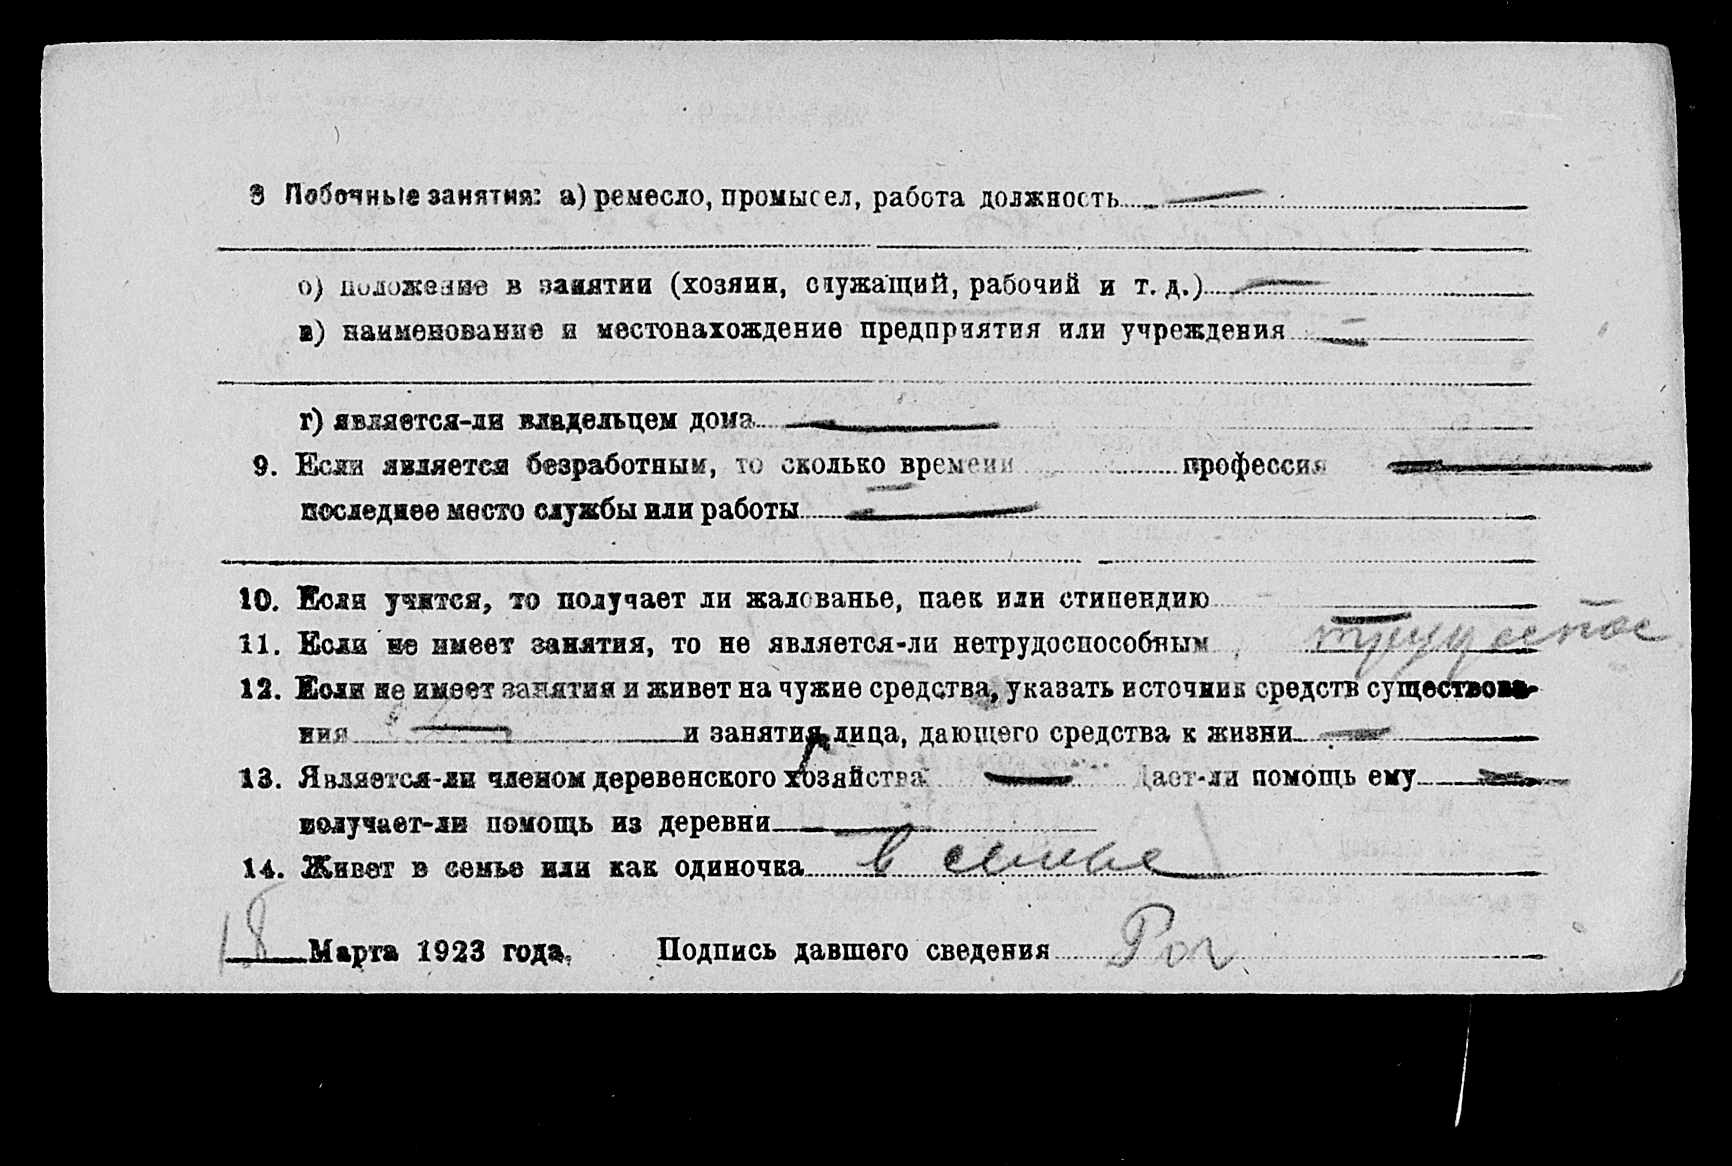 8 Побочные занятия: а) ремесло, промысел, работа должность —
о) положение в занятии (хозяин, служащий, рабочий и т. д.) —
в) наименование и местонахождение предприятия или учреждения —
г) является-ли владельцем дома —
9. Если является безработным, то сколько времени — профессия —
последнее место службы или работы —
10. Если учится, то получает ли жалованье, паек или стипендию —
11. Если не имеет занятия, то не является-ли нетрудоспособным
12. Если не имеет занятия и живет на чужие средства, указать источник средств существова-
ния — и занятия лица, дающего средства к жизни —
13. Является-ли членом деревенского хозяйства — Дает-ли помощь ему —
получает-ли помощь из деревни —
14. Живет в семье или как одиночка в семье
18 Марта 1923 года. Подпись давшего сведения